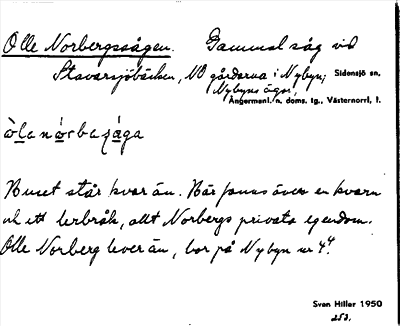 Olle Norbergssågen. Gammal såg vid
Stavarsjöbäcken, NO gårdarna i Nybyn; Sidensjö sn,
Nybyns ägor,
Ångermanl:n. doms. tg., Västernorrl. l.
òlanórbazága
Huset står kvar än. Här fanns även en kvarn
och ett lerbråk, allt Norbergs privata egendom.
Olle Norberg lever än, bor på Nybyn nr 4⁴.
Sven Hiller 1950
253.